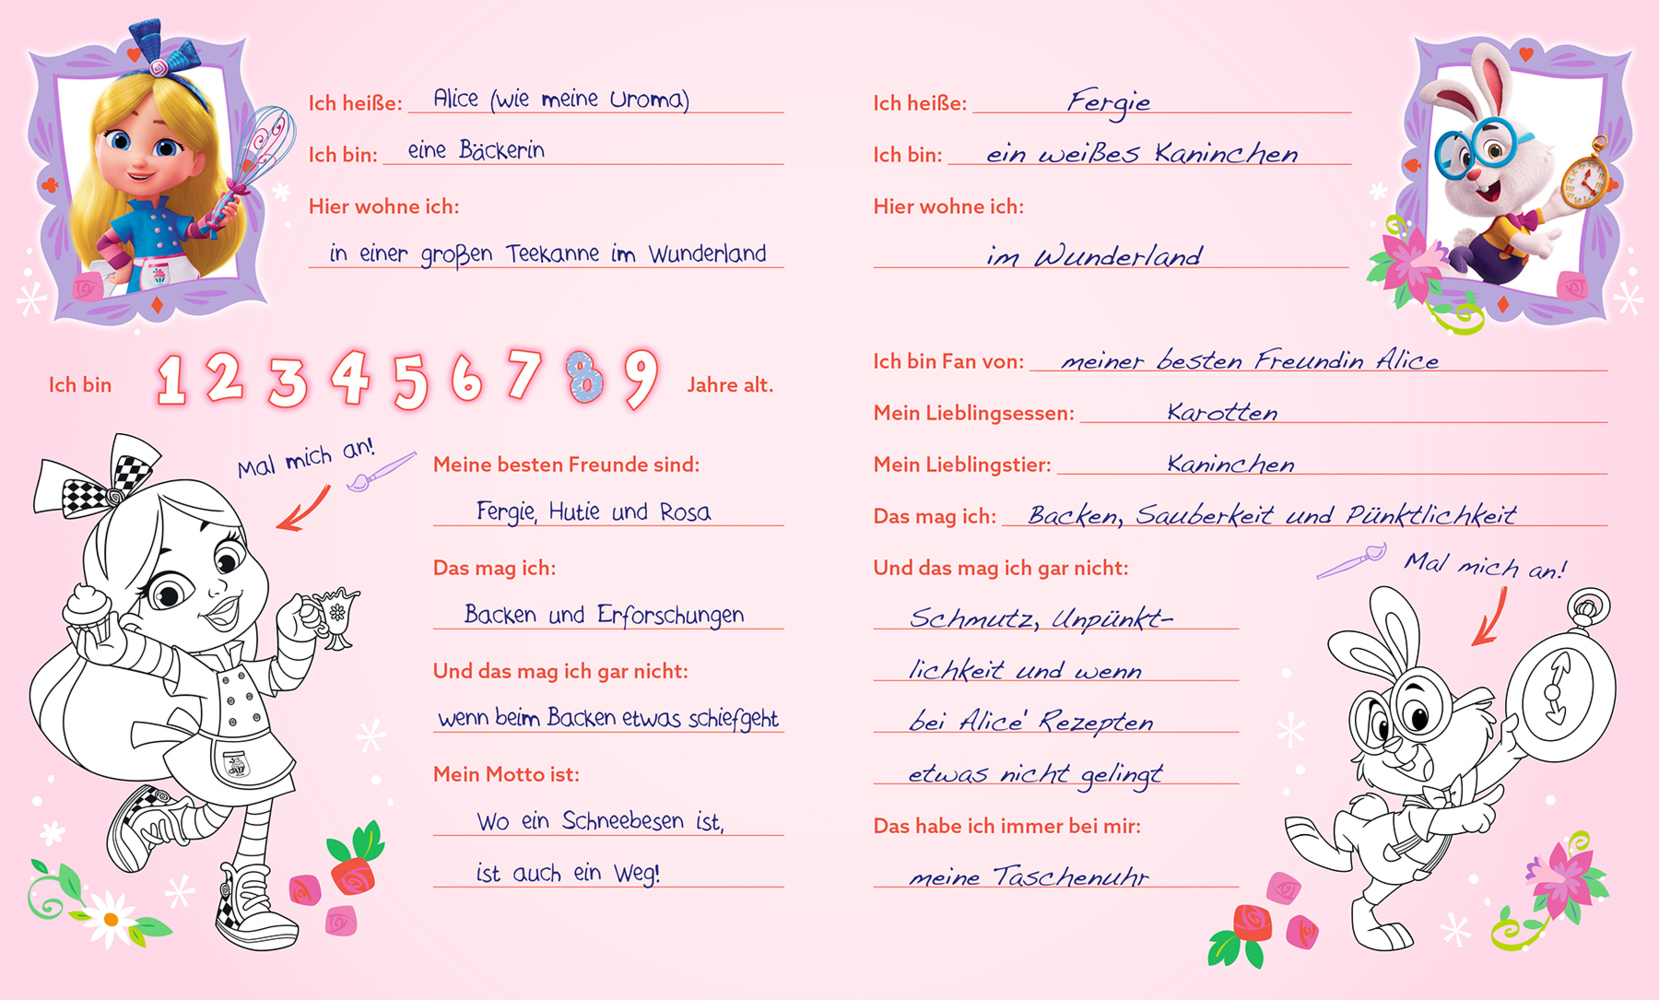 Ich heiße: Alice (wie meine Uroma)
Ich bin: eine Bäckerin
Hier wohne ich:
in einer großen Teekanne im Wunderland
Ich bin 1 2 3 4 5 6 7 8 9 Jahre alt.
Mal mich an!
Meine besten Freunde sind:
Fergie, Hutie und Rosa
Das mag ich:
Backen und Erforschungen
Und das mag ich gar nicht:
wenn beim Backen etwas schiefgeht
Mein Motto ist:
Wo ein Schneebesen ist,
ist auch ein Weg!
Ich heiße: Fergie
Ich bin: ein weißes Kaninchen
Hier wohne ich:
im Wunderland
Ich bin Fan von: meiner besten Freundin Alice
Mein Lieblingsessen: Karotten
Mein Lieblingstier: Kaninchen
Das mag ich: Backen, Sauberkeit und Pünktlichkeit
Und das mag ich gar nicht:
Schmutz, Unpünkt-
lichkeit und wenn
bei Alice' Rezepten
etwas nicht gelingt
Das habe ich immer bei mir:
meine Taschenuhr
Mal mich an!